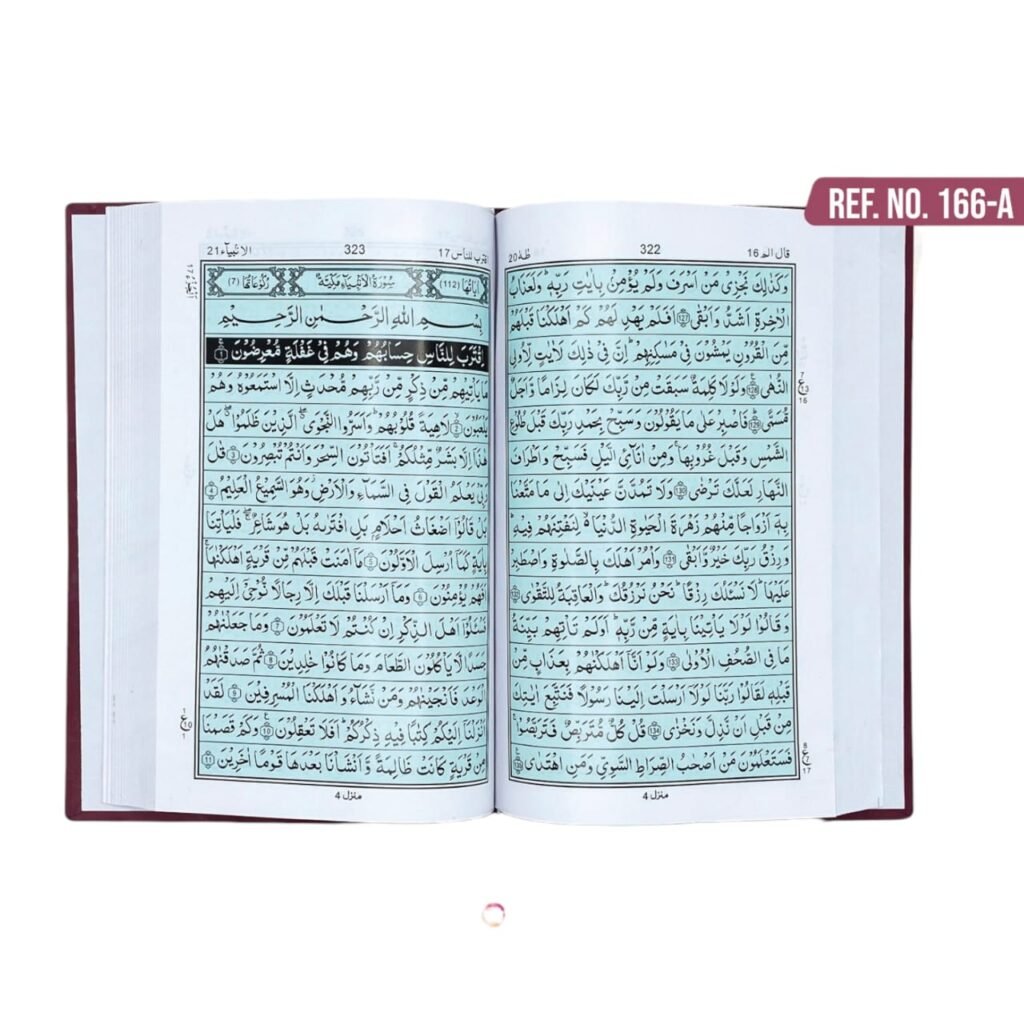 REF. NO. 166-A
قال الم ١٦ 322 طٰهٰ 20
وَكَذٰلِكَ نَجْزِىْ مَنْ اَسْرَفَ وَلَمْ يُؤْمِنْۢ بِاٰيٰتِ رَبِّهٖ ؕ وَلَعَذَابُ
الْاٰخِرَةِ اَشَدُّ وَاَبْقٰى 127 اَفَلَمْ يَهْدِ لَهُمْ كَمْ اَهْلَكْنَا قَبْلَهُمْ
مِّنَ الْقُرُوْنِ يَمْشُوْنَ فِىْ مَسٰكِنِهِمْ ؕ اِنَّ فِىْ ذٰلِكَ لَاٰيٰتٍ لِّاُولِى
النُّهٰى 128 وَلَوْلَا كَلِمَةٌ سَبَقَتْ مِنْ رَّبِّكَ لَكَانَ لِزَامًا وَّاَجَلٌ
مُّسَمًّى 129 فَاصْبِرْ عَلٰى مَا يَقُوْلُوْنَ وَسَبِّحْ بِحَمْدِ رَبِّكَ قَبْلَ طُلُوْعِ
الشَّمْسِ وَقَبْلَ غُرُوْبِهَا ۚ وَمِنْ اٰنَآئِ الَّيْلِ فَسَبِّحْ وَاَطْرَافَ
النَّهَارِ لَعَلَّكَ تَرْضٰى 130 وَلَا تَمُدَّنَّ عَيْنَيْكَ اِلٰى مَا مَتَّعْنَا
بِهٖۤ اَزْوَاجًا مِّنْهُمْ زَهْرَةَ الْحَيٰوةِ الدُّنْيَا ۙ لِنَفْتِنَهُمْ فِيْهِ ؕ
وَرِزْقُ رَبِّكَ خَيْرٌ وَّاَبْقٰى 131 وَاْمُرْ اَهْلَكَ بِالصَّلٰوةِ وَاصْطَبِرْ
عَلَيْهَا ؕ لَا نَسْئَلُكَ رِزْقًا ؕ نَحْنُ نَرْزُقُكَ ؕ وَالْعَاقِبَةُ لِلتَّقْوٰى 132
وَقَالُوْا لَوْلَا يَاْتِيْنَا بِاٰيَةٍ مِّنْ رَّبِّهٖ ؕ اَوَلَمْ تَاْتِهِمْ بَيِّنَةُ
مَا فِى الصُّحُفِ الْاُوْلٰى 133 وَلَوْ اَنَّاۤ اَهْلَكْنٰهُمْ بِعَذَابٍ مِّنْ
قَبْلِهٖ لَقَالُوْا رَبَّنَا لَوْلَاۤ اَرْسَلْتَ اِلَيْنَا رَسُوْلًا فَنَتَّبِعَ اٰيٰتِكَ
مِنْ قَبْلِ اَنْ نَّذِلَّ وَنَخْزٰى 134 قُلْ كُلٌّ مُّتَرَبِّصٌ فَتَرَبَّصُوْا ۚ
فَسَتَعْلَمُوْنَ مَنْ اَصْحٰبُ الصِّرَاطِ السَّوِىِّ وَمَنِ اهْتَدٰى 135
منزل 4
اقترب للناس 17 323 الانبيآء 21
اٰيَاتُهَا (112) سُوْرَةُ الْاَنْۢبِيَآءِ مَكِّيَّةٌ رُكُوْعَاتُهَا (7)
بِسْمِ اللّٰهِ الرَّحْمٰنِ الرَّحِيْمِ
اِقْتَرَبَ لِلنَّاسِ حِسَابُهُمْ وَهُمْ فِىْ غَفْلَةٍ مُّعْرِضُوْنَ 1
مَا يَاْتِيْهِمْ مِّنْ ذِكْرٍ مِّنْ رَّبِّهِمْ مُّحْدَثٍ اِلَّا اسْتَمَعُوْهُ وَهُمْ
يَلْعَبُوْنَ 2 لَاهِيَةً قُلُوْبُهُمْ ؕ وَاَسَرُّوا النَّجْوَى ۖ الَّذِيْنَ ظَلَمُوْا ۖ هَلْ
هٰذَاۤ اِلَّا بَشَرٌ مِّثْلُكُمْ ۚ اَفَتَاْتُوْنَ السِّحْرَ وَاَنْتُمْ تُبْصِرُوْنَ 3 قٰلَ
رَبِّىْ يَعْلَمُ الْقَوْلَ فِى السَّمَآءِ وَالْاَرْضِ ۫ وَهُوَ السَّمِيْعُ الْعَلِيْمُ 4
بَلْ قَالُوْۤا اَضْغَاثُ اَحْلَامٍۭ بَلِ افْتَرٰىهُ بَلْ هُوَ شَاعِرٌ ۖ فَلْيَاْتِنَا
بِاٰيَةٍ كَمَاۤ اُرْسِلَ الْاَوَّلُوْنَ 5 مَاۤ اٰمَنَتْ قَبْلَهُمْ مِّنْ قَرْيَةٍ اَهْلَكْنٰهَا ۚ
اَفَهُمْ يُؤْمِنُوْنَ 6 وَمَاۤ اَرْسَلْنَا قَبْلَكَ اِلَّا رِجَالًا نُّوْحِىْۤ اِلَيْهِمْ
فَسْئَلُوْۤا اَهْلَ الذِّكْرِ اِنْ كُنْتُمْ لَا تَعْلَمُوْنَ 7 وَمَا جَعَلْنٰهُمْ
جَسَدًا لَّا يَاْكُلُوْنَ الطَّعَامَ وَمَا كَانُوْا خٰلِدِيْنَ 8 ثُمَّ صَدَقْنٰهُمُ
الْوَعْدَ فَاَنْجَيْنٰهُمْ وَمَنْ نَّشَآءُ وَاَهْلَكْنَا الْمُسْرِفِيْنَ 9 لَقَدْ
اَنْزَلْنَاۤ اِلَيْكُمْ كِتٰبًا فِيْهِ ذِكْرُكُمْ ؕ اَفَلَا تَعْقِلُوْنَ 10 وَكَمْ قَصَمْنَا
مِنْ قَرْيَةٍ كَانَتْ ظَالِمَةً وَّاَنْشَاْنَا بَعْدَهَا قَوْمًا اٰخَرِيْنَ 11
منزل 4